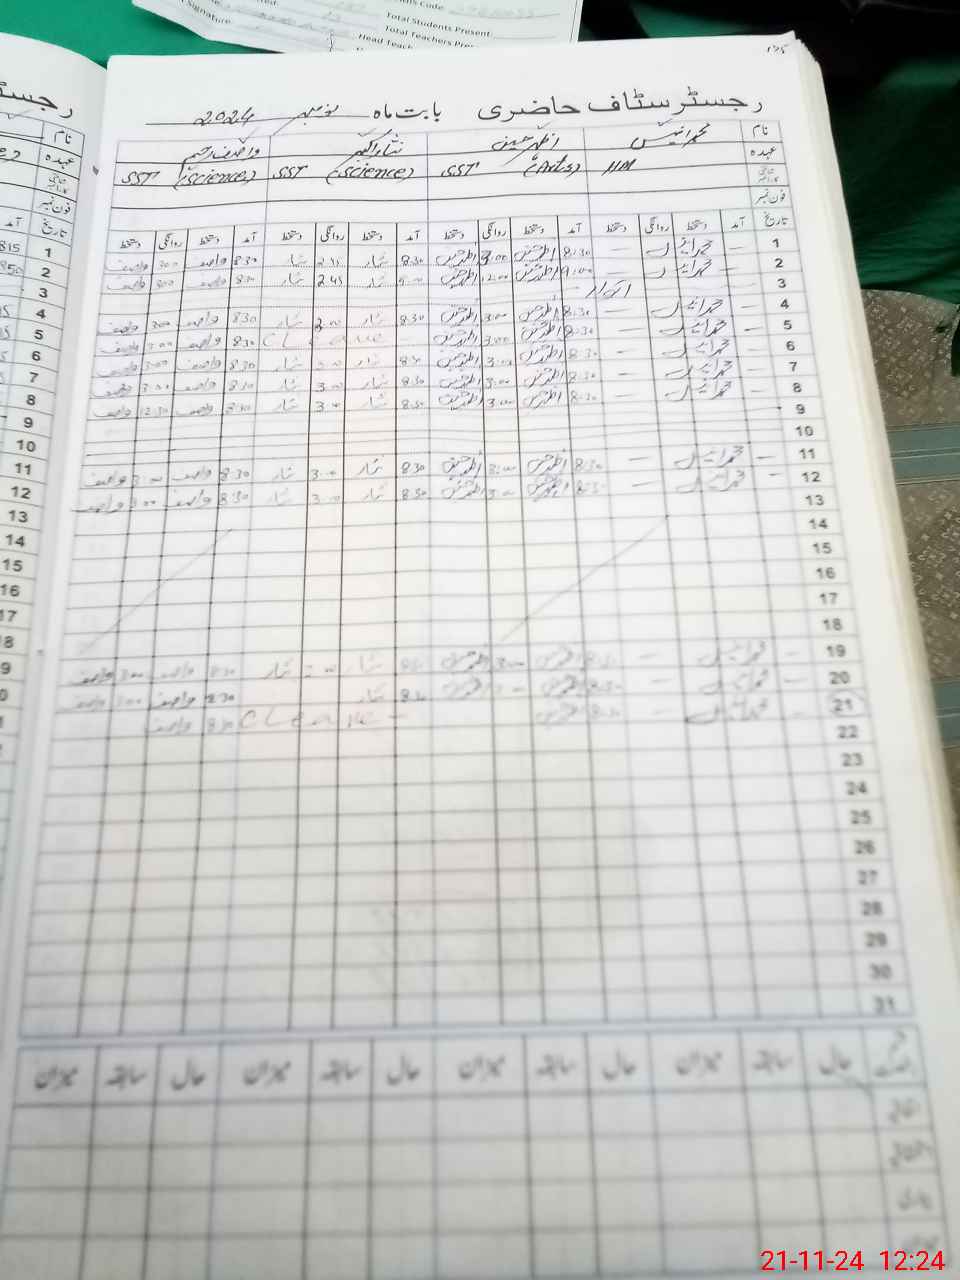 175
Code
Total Students Present:
Signature:
Total Teachers Pre
Head Teach
رجسٹر سٹاف حاضری بابت ماہ نومبر 2024
نام محمد انیس اظہر حسین نثار اکبر واصف رحیم
عہدہ HM SST (Arts) SST (Science) SST (Science)
فون نمبر
تاریخ آمد دستخط روانگی دستخط آمد دستخط روانگی دستخط آمد دستخط روانگی دستخط آمد دستخط روانگی دستخط
1 — محمد انیس — 8:30 اظہر حسین 3:00 اظہر حسین 8:30 نثار 2:15 نثار 8:30 واصف 3:00 واصف
2 — محمد انیس — 9:00 اظہر حسین 12:00 اظہر حسین 9:00 نثار 2:45 نثار 8:30 واصف 3:00 واصف
3 اتوار
4 — محمد انیس — 8:30 اظہر حسین 3:00 اظہر حسین 8:30 نثار 3:00 نثار 8:30 واصف 3:00 واصف
5 — محمد انیس — 8:30 اظہر حسین 3:00 اظہر حسین — C Leave 8:30 واصف 3:00 واصف
6 — محمد انیس — 8:30 اظہر حسین 3:00 اظہر حسین 8:30 نثار 3:00 نثار 8:30 واصف 3:00 واصف
7 — محمد انیس — 8:30 اظہر حسین 3:00 اظہر حسین 8:30 نثار 3:00 نثار 8:30 واصف 3:00 واصف
8 — محمد انیس — 8:30 اظہر حسین 3:00 اظہر حسین 8:30 نثار 3:00 نثار 8:30 واصف 12:30 واصف
9
10
11 — محمد انیس — 8:30 اظہر حسین 3:00 اظہر حسین 8:30 نثار 3:00 نثار 8:30 واصف 3:00 واصف
12 — محمد انیس — 8:30 اظہر حسین 3:00 اظہر حسین 8:30 نثار 3:00 نثار 8:30 واصف 3:00 واصف
13
14
15
16
17
18
19 — محمد انیس — 8:30 اظہر حسین 3:00 اظہر حسین 8:30 نثار 3:00 نثار 8:30 واصف 3:00 واصف
20 — محمد انیس — 8:30 اظہر حسین اظہر حسین 8:30 نثار 8:30 واصف 3:00 واصف
21 — محمد انیس — 8:30 اظہر حسین — C Leave 8:30 واصف
22
23
24
25
26
27
28
29
30
31
حال سابقہ میزان حال سابقہ میزان حال سابقہ میزان حال سابقہ میزان
21-11-24 12:24